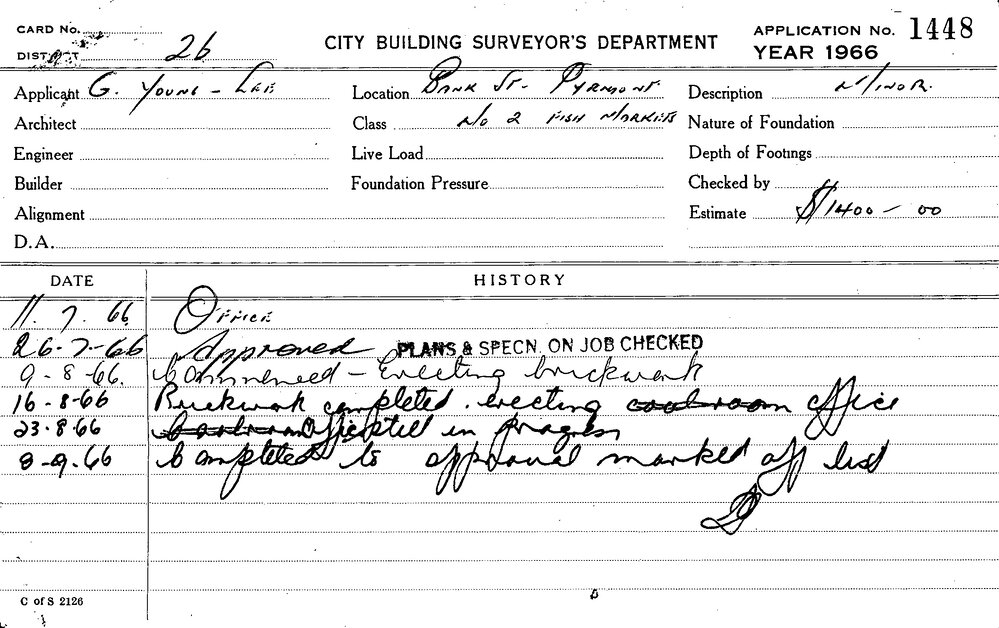 CARD No.
DISTRICT 26
CITY BUILDING SURVEYOR'S DEPARTMENT
APPLICATION No. 1448
YEAR 1966
Applicant G. YOUNG - LEE
Location BANK ST. PYRMONT
Description MINOR.
Architect
Class No 2 FISH MARKETS
Nature of Foundation
Engineer
Live Load
Depth of Footings
Builder
Foundation Pressure
Checked by
Alignment
Estimate $1400 - 00
D.A.
DATE HISTORY
11. 7. 66 OFFICE
26-7-66 Approved PLANS & SPECN. ON JOB CHECKED
9-8-66. Commenced - Erecting brickwork
16-8-66 Brickwork completed. erecting coolroom office
23.8.66 Coolroom Office still in progress
8-9.66 Completed to approval marked off list
C of S 2126